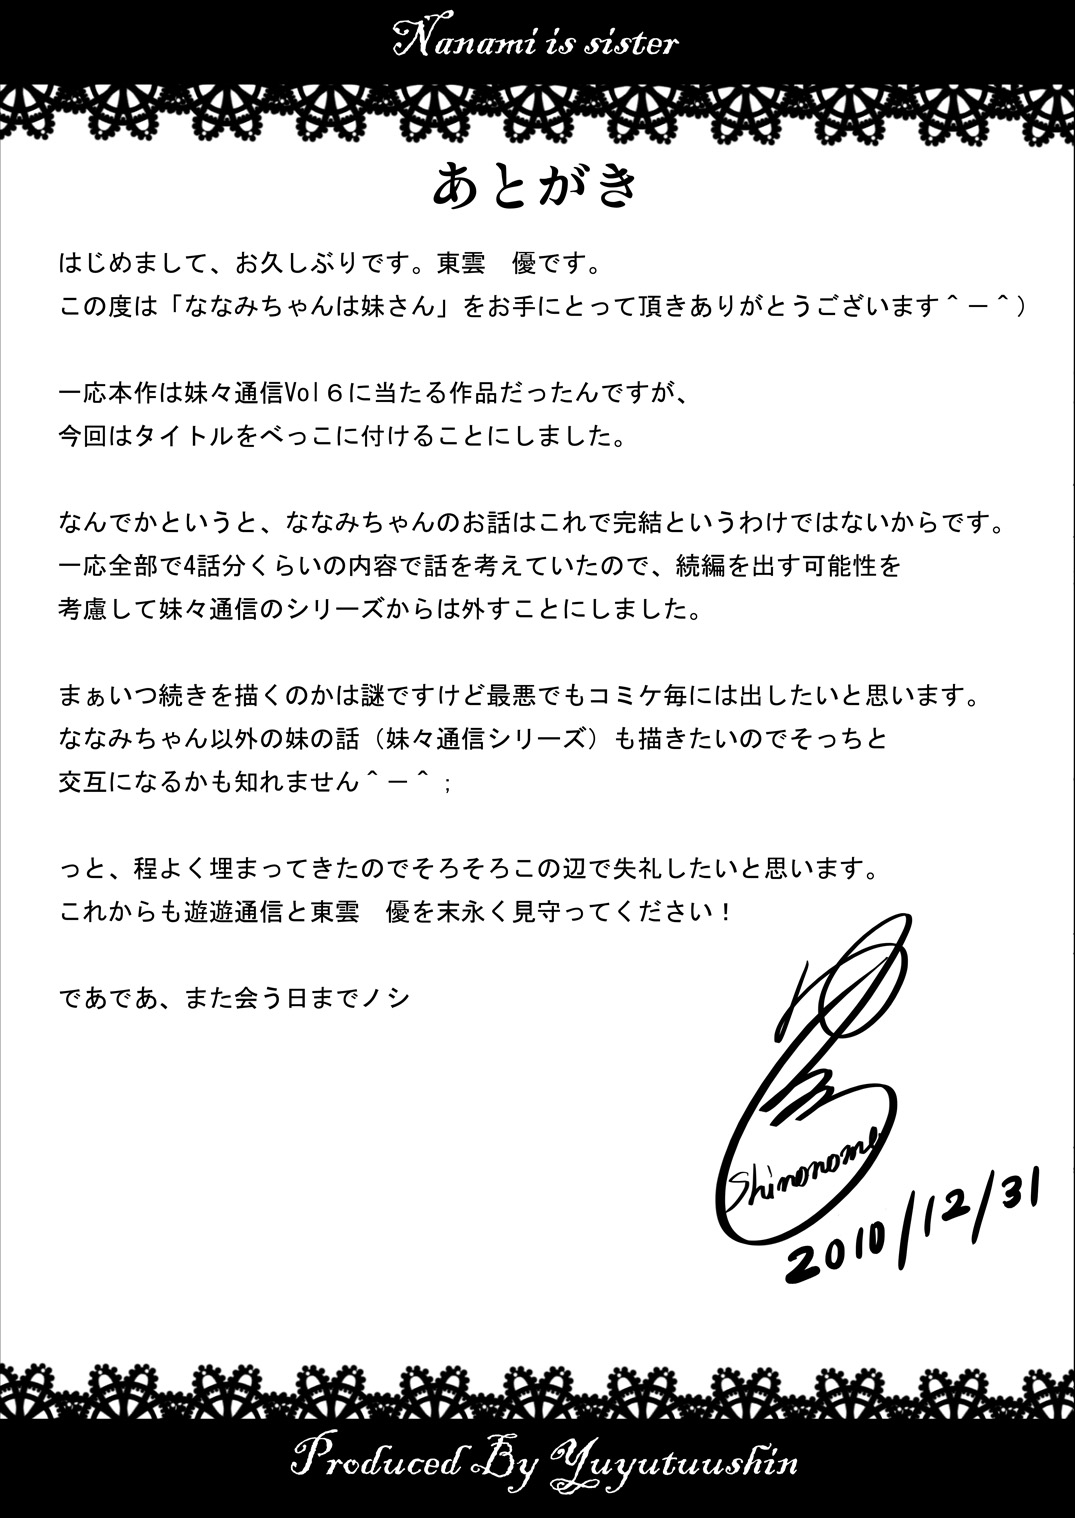 Nanami is sister
あとがき
はじめまして、お久しぶりです。東雲　優です。
この度は「ななみちゃんは妹さん」をお手にとって頂きありがとうございます＾－＾）
一応本作は妹々通信Vol６に当たる作品だったんですが、
今回はタイトルをべっこに付けることにしました。
なんでかというと、ななみちゃんのお話はこれで完結というわけではないからです。
一応全部で4話分くらいの内容で話を考えていたので、続編を出す可能性を
考慮して妹々通信のシリーズからは外すことにしました。
まぁいつ続きを描くのかは謎ですけど最悪でもコミケ毎には出したいと思います。
ななみちゃん以外の妹の話（妹々通信シリーズ）も描きたいのでそっちと
交互になるかも知れません＾－＾；
っと、程よく埋まってきたのでそろそろこの辺で失礼したいと思います。
これからも遊遊通信と東雲　優を末永く見守ってください！
であであ、また会う日までノシ
Shinonome
2010/12/31
Produced By Yuyutuushin